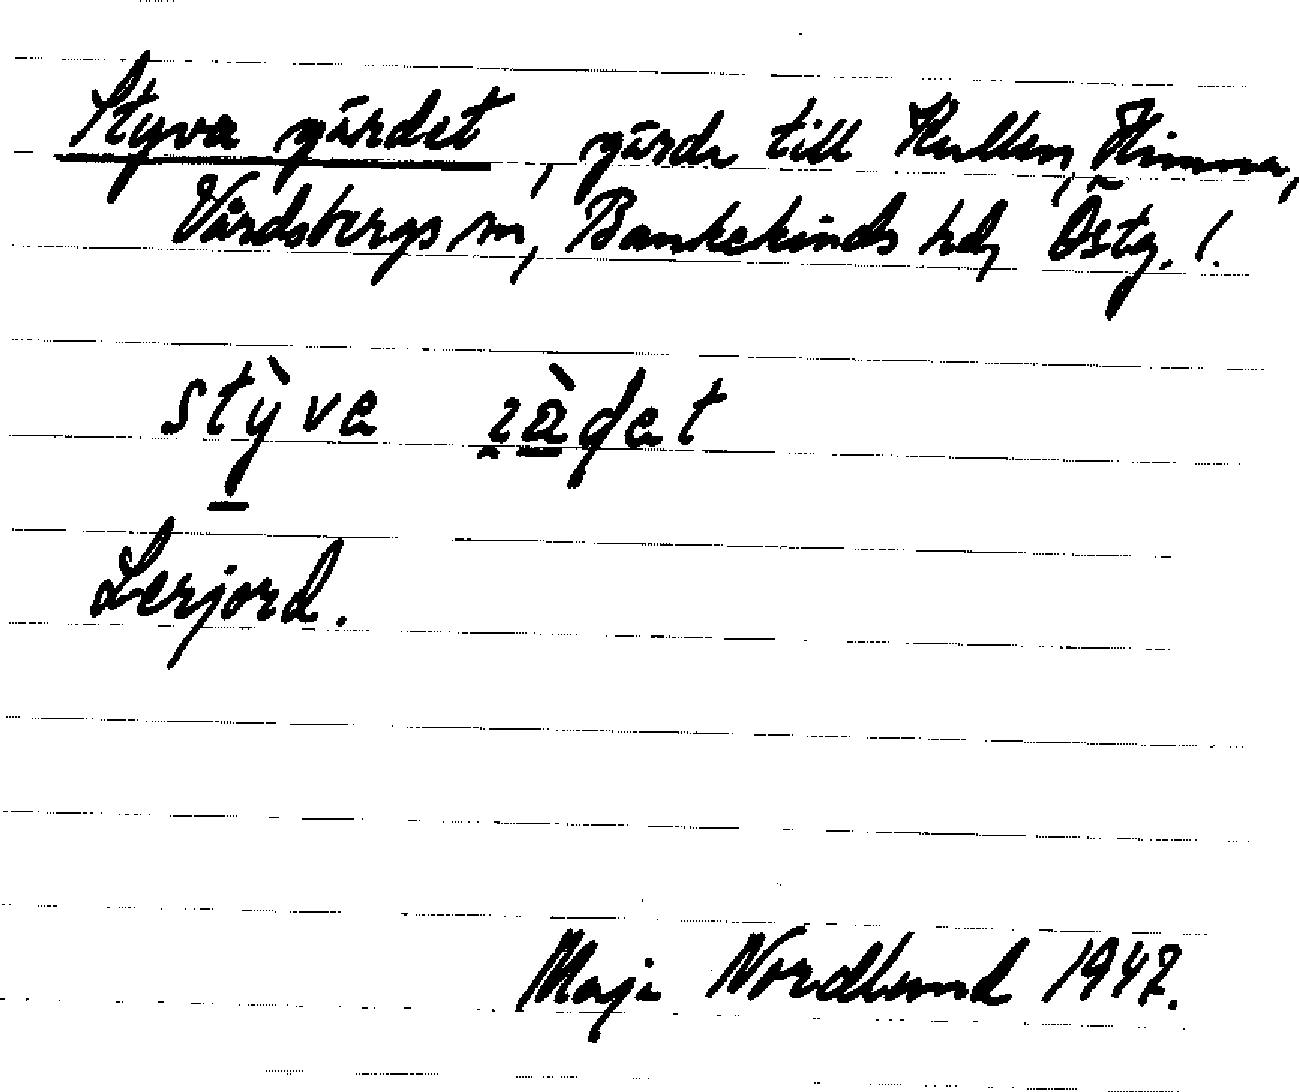 Styva gärdet, gärde till Kullen, Himna,
Vårdsbergs sn, Bankekinds hd, Östg. l.
stỳva
Lerjord.
Maja Nordlund 1947.